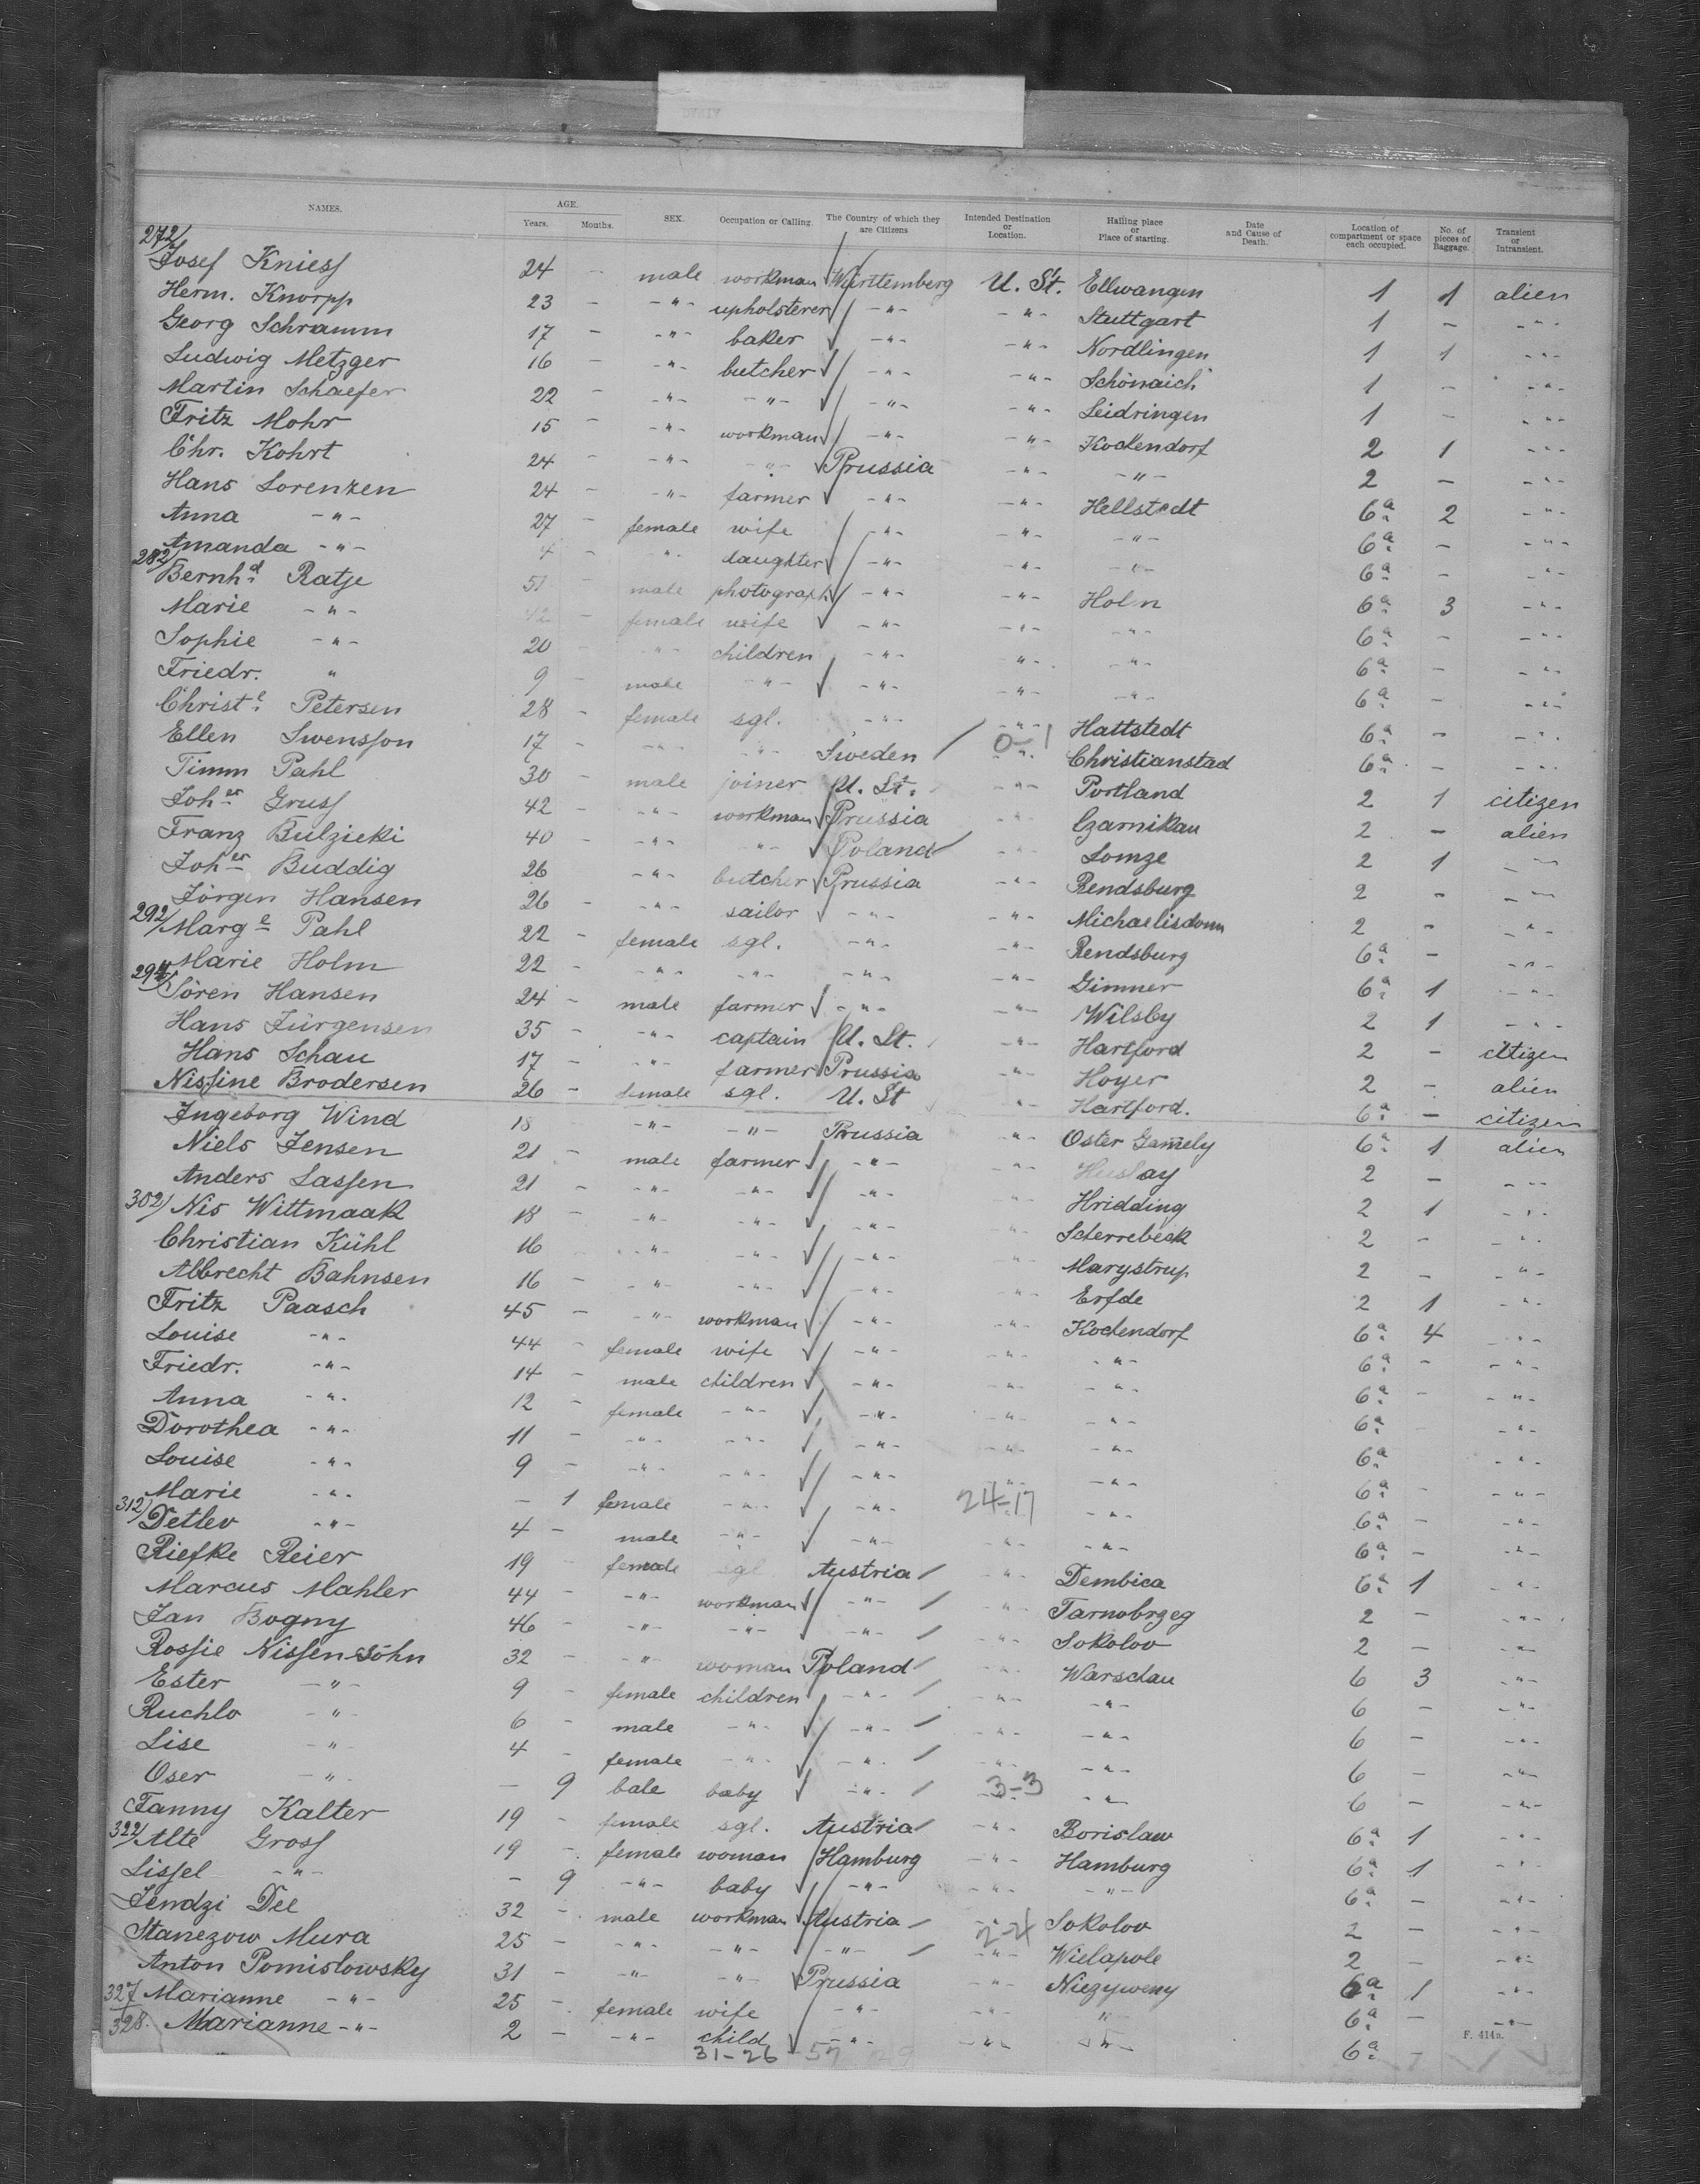 NAMES. AGE. Years. Months. SEX. Occupation or Calling The Country of which they are Citizens Intended Destination or Location. Hailing place or Place of starting. Date and Cause of Death. Location of compartment or space each occupied. No. of pieces of Baggage. Transient or Intransient.
272/ Josef Kniess 24 - male workman Württemberg U. St. Ellwangen 1 1 alien
Herm. Knorpp 23 - -"- upholsterer -"- -"- Stuttgart 1 - -"-
Georg Schramm 17 - -"- baker -"- -"- Nordlingen 1 1 -"-
Ludwig Metzger 16 - -"- butcher -"- -"- Schönaich 1 - -"-
Martin Schaefer 22 - -"- -"- -"- -"- Leidringen 1 - -"-
Fritz Mohr 15 - -"- workman -"- -"- Kochendorf 2 1 -"-
Chr. Kohrt 24 - -"- -"- Prussia -"- -"- 2 - -"-
Hans Lorenzen 24 - -"- farmer -"- -"- Hellstedt 6a 2 -"-
Anna -"- 27 - female wife -"- -"- -"- 6a - -"-
Amanda -"- 4 - -"- daughter -"- -"- -"- 6a - -"-
282/ Bernhd Ratje 51 - male photograph -"- -"- Holm 6a 3 -"-
Marie -"- 42 - female wife -"- -"- -"- 6a - -"-
Sophie -"- 20 - -"- children -"- -"- -"- 6a - -"-
Friedr. " 9 - male -"- -"- -"- -"- 6a - -"-
Christe Petersen 28 - female sgl. -"- -"- Hattstedt 6a - -"-
Ellen Swensson 17 - -"- -"- Sweden 0-1 -"- Christianstad 6a - -"-
Timm Pahl 30 - male joiner U. St. -"- Portland 2 1 citizen
Johes Gruss 42 - -"- workman Prussia -"- Czarnikau 2 - alien
Franz Bulzicki 40 - -"- -"- Poland -"- Lomze 2 1 -"-
Johes Buddig 26 - -"- butcher Prussia -"- Rendsburg 2 - -"-
Jörgen Hansen 26 - -"- sailor -"- -"- Michaelisdonn 2 - -"-
292/ Marge Pahl 22 - female sgl. -"- -"- Rendsburg 6a - -"-
Marie Holm 22 - -"- -"- -"- -"- Gimner 6a 1 -"-
294/ Sören Hansen 24 - male farmer -"- -"- Wilsby 2 1 -"-
Hans Jürgensen 35 - -"- captain U. St. -"- Hartford 2 - citizen
Hans Schau 17 - -"- farmer Prussia -"- Hoyer 2 - alien
Nissine Brodersen 26 - female sgl. U. St -"- Hartford. 6a - citizen
Ingeborg Wind 18 -"- -"- Prussia -"- Oster Gamely 6a 1 alien
Niels Jensen 21 - male farmer -"- -"- 2 - -"-
Anders Lassen 21 - -"- -"- -"- -"- Hridding 2 1 -"-
302/ Nis Wittmaak 18 - -"- -"- -"- -"- Scherrebeck 2 - -"-
Christian Kühl 16 - -"- -"- -"- -"- Marystrup 2 - -"-
Albrecht Bahnsen 16 - -"- -"- -"- -"- Erfde 2 1 -"-
Fritz Paasch 45 - -"- workman -"- -"- Kochendorf 6a 4 -"-
Louise -"- 44 - female wife -"- -"- -"- 6a - -"-
Friedr. -"- 14 - male children -"- -"- -"- 6a - -"-
Anna -"- 12 - female -"- -"- -"- -"- 6a - -"-
Dorothea -"- 11 - -"- -"- -"- -"- -"- 6a -"-
Louise -"- 9 - -"- -"- -"- -"- -"- 6a - -"-
Marie -"- - 1 female -"- -"- 24-17 -"- 6a - -"-
312/ Detlev -"- 4 - male -"- -"- -"- -"- 6a - -"-
Riefke Reier 19 - female sgl Austria -"- Dembica 6a 1 -"-
Marcus Mahler 44 - -"- workman -"- -"- Tarnobrzeg 2 - -"-
Jan Bogny 46 - -"- -"- -"- -"- Sokolov 2 - -"-
Rossie Nissensohn 32 - -"- woman Poland -"- Warschau 6 3 -"-
Ester -"- 9 - female children -"- -"- -"- 6 - -"-
Ruchlo -"- 6 - male -"- -"- -"- -"- 6 - -"-
Lise -"- 4 - female -"- -"- -"- -"- 6 - -"-
Oser -"- - 9 bale baby -"- 3-3 -"- 6 - -"-
Fanny Kalter 19 - female sgl. Austria -"- Borislaw 6a 1 -"-
322/ Alte Gross 19 - female woman Hamburg -"- Hamburg 6a 1 -"-
Lissel -"- - 9 -"- baby -"- -"- -"- 6a - -"-
Jendzi Dee 32 - male workman Austria -"- Sokolov 2 - -"-
Stanezow Mura 25 - -"- -"- -"- 2-4 -"- Wielapole 2 - -"-
Anton Pomislowsky 31 - -"- -"- Prussia -"- Niezyweny 6a 1 -"-
327 Marianne -"- 25 - female wife -"- -"- " 6a - -"-
328. Marianne -"- 2 - -"- child -"- -"- -"- 6a -
31-26 57 29
F. 414a.